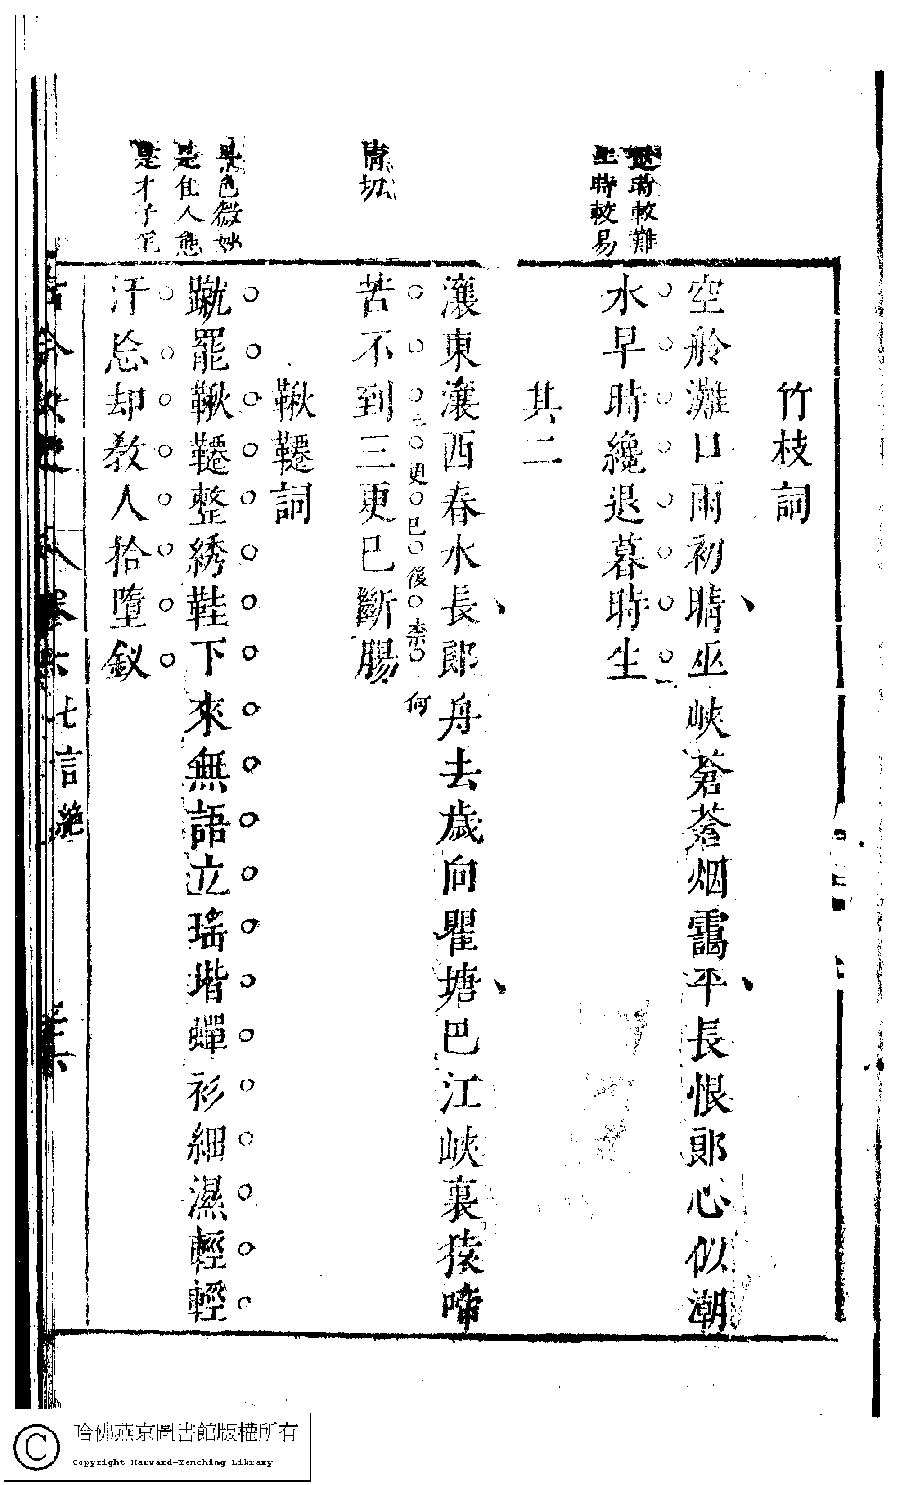 退時較難
生時較易
竹枝詞
空舲灘口雨初晴巫峽蒼蒼烟靄平長恨郎心似潮
水早時纔退暮時生
其二
瀼東瀼西春水長郎舟去歲向瞿塘巴江峽裏猿啼
情切
苦不到三更已斷腸
三更已後柰何
鞦韆詞
是色微妙
是佳人態
是才子筆
蹴罷鞦韆整綉鞋下來無語立瑤堦蟬衫細濕輕輕
汗忩却教人拾墮釵
卷六
七言絶
哈佛燕京圖書館版權所有
Copyright Harvard-Yenching Library